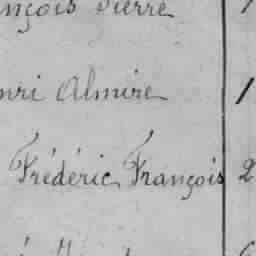 nçois Pierre 1
nri Almire 1
Frédéric François 2